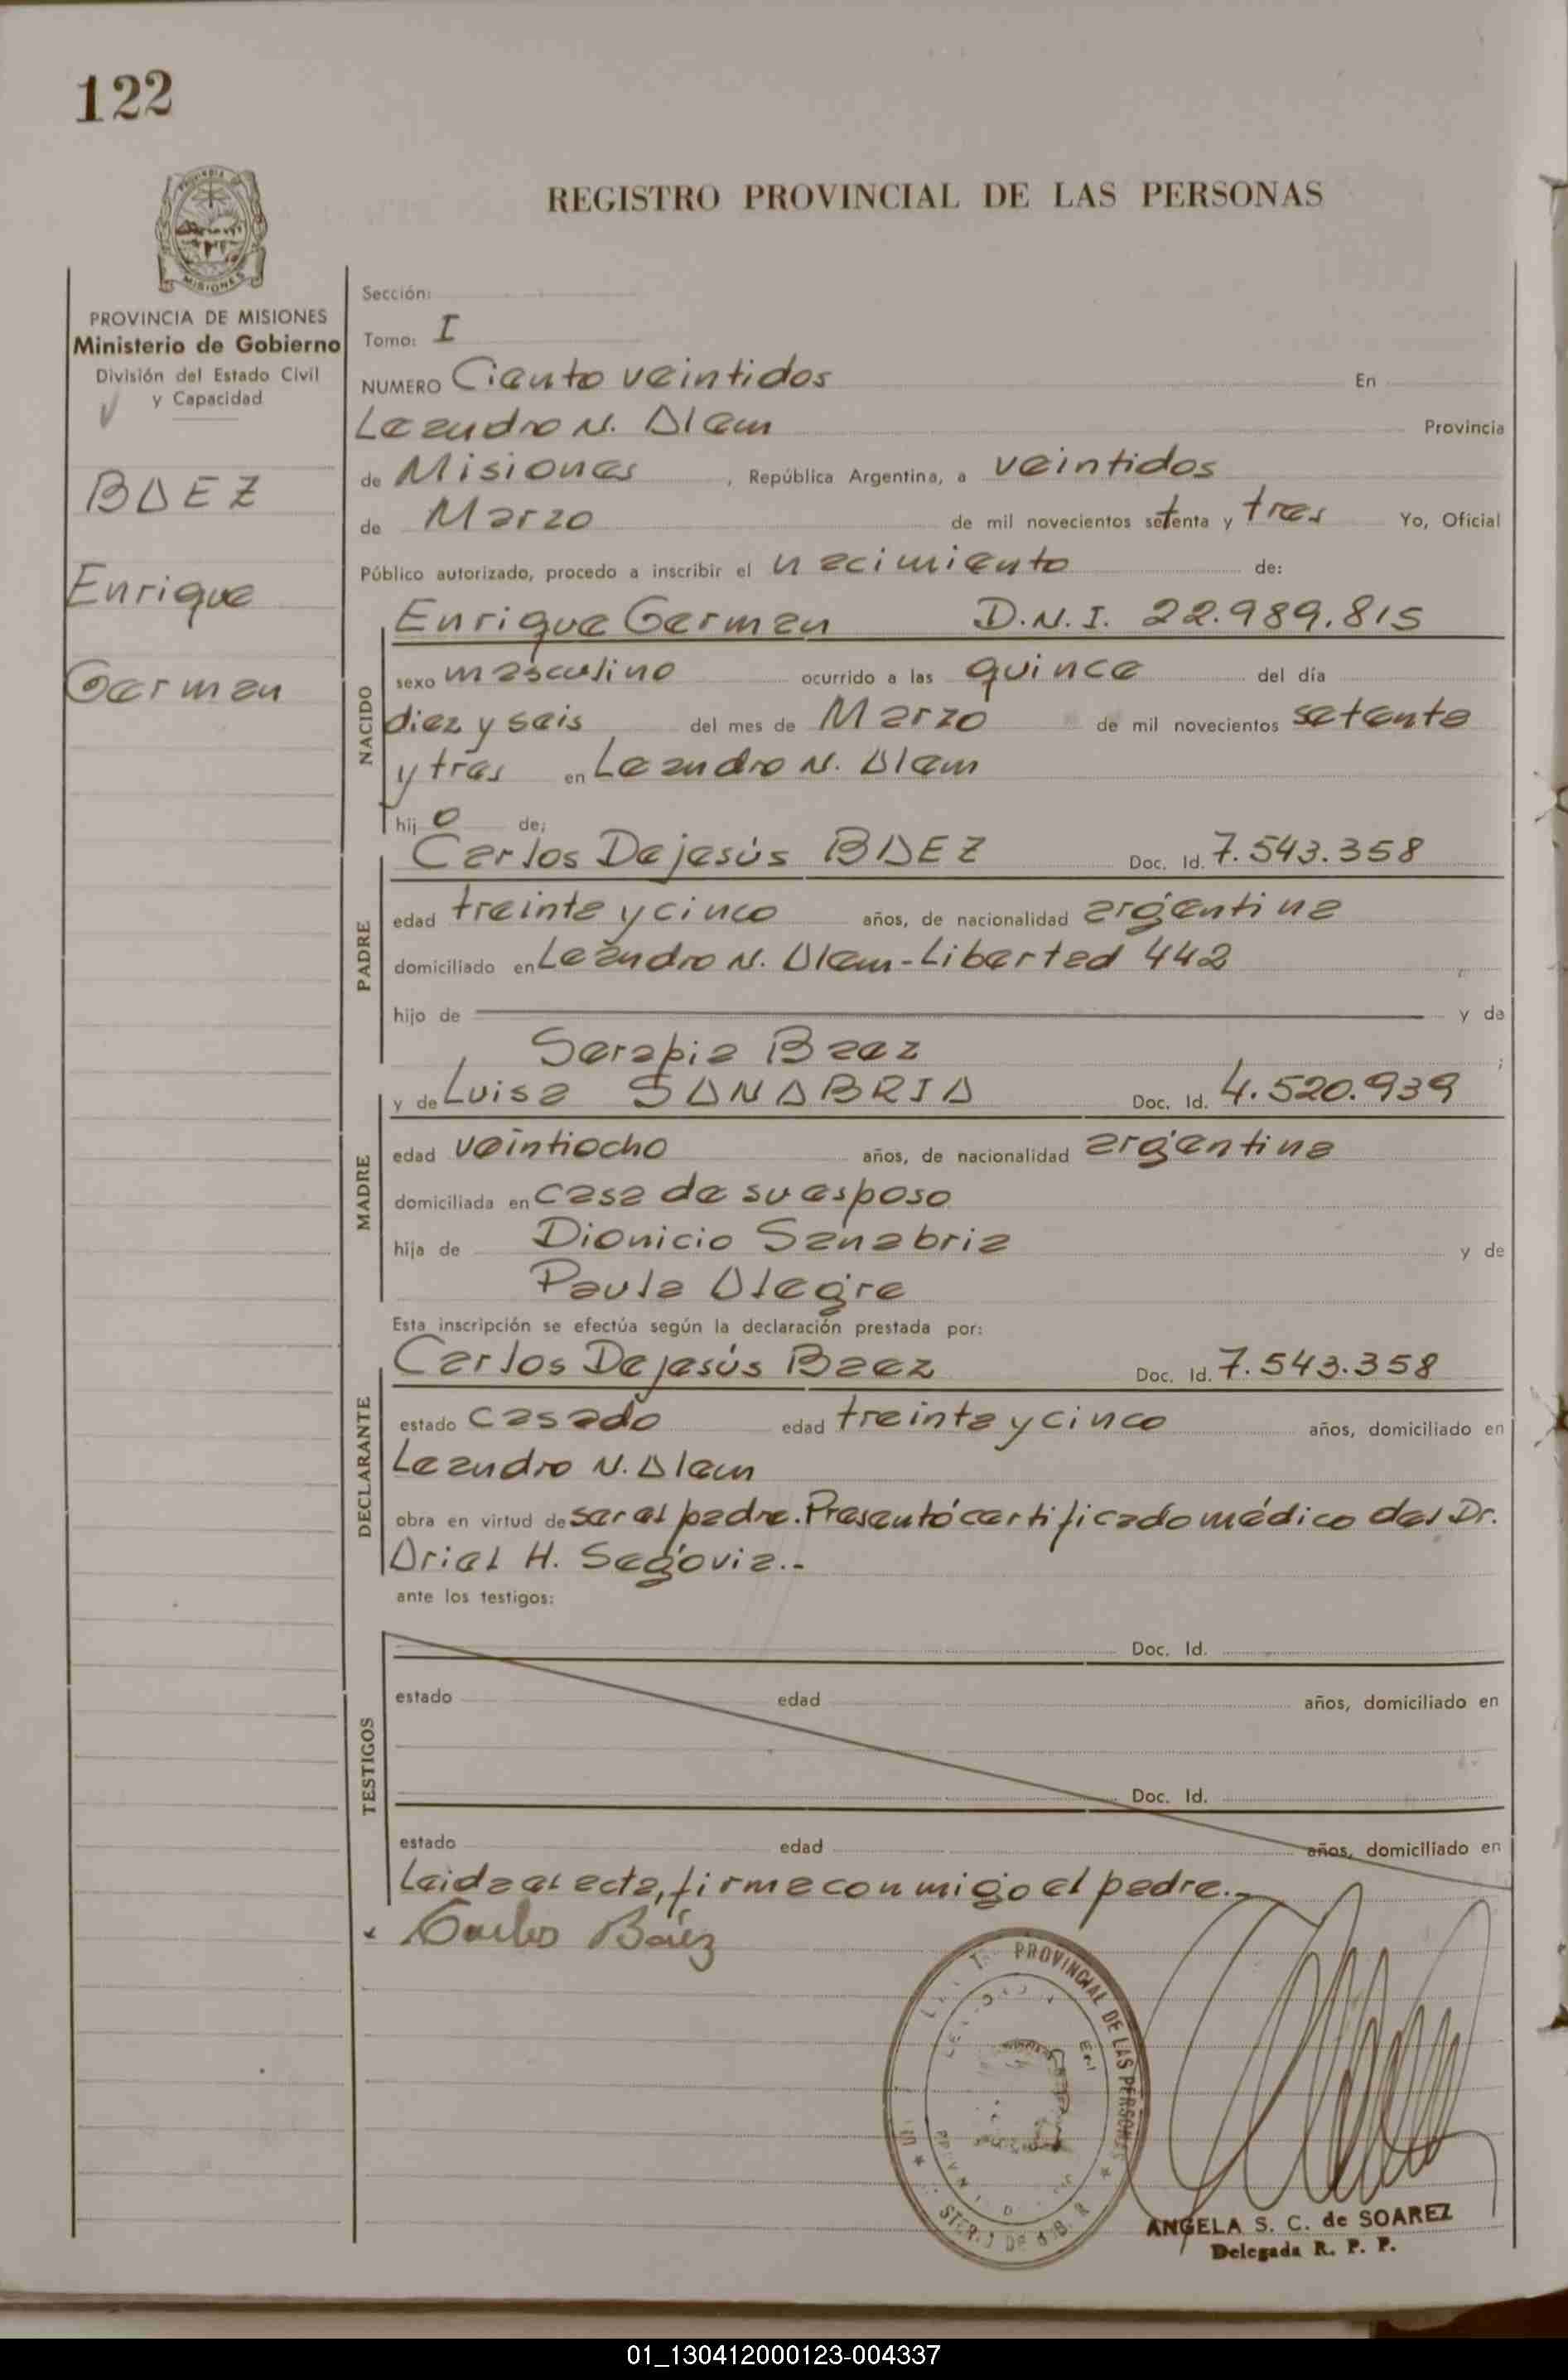 122
REGISTRO PROVINCIAL DE LAS PERSONAS
MISIONES
PROVINCIA DE MISIONES
Ministerio de Gobierno
División del Estado Civil
y Capacidad
BAEZ
Enrique
German
Sección:
Tomo: I
NUMERO Ciento veintidos En
Leandro N. Alem Provincia
de Misiones, República Argentina, a veintidos
de Marzo de mil novecientos setenta y tres Yo, Oficial
Público autorizado, procedo a inscribir el nacimiento de:
NACIDO
Enrique German D.N.I. 22.989.815
sexo masculino ocurrido a las quince del día
diez y seis del mes de Marzo de mil novecientos setenta
y tres en Leandro N. Alem
hijo de;
PADRE
Carlos Dejesús BAEZ Doc. Id. 7.543.358
edad treinta y cinco años, de nacionalidad argentina
domiciliado en Leandro N. Alem - Libertad 442
hijo de y de
Serapia Baez ;
MADRE
y de Luisa SANABRIA Doc. Id. 4.520.939
edad veintiocho años, de nacionalidad argentina
domiciliada en casa de su esposo
hija de Dionicio Sanabria y de
Paula Alegre
Esta inscripción se efectúa según la declaración prestada por:
DECLARANTE
Carlos Dejesús Baez Doc. Id. 7.543.358
estado casado edad treinta y cinco años, domiciliado en
Leandro N. Alem
obra en virtud de ser el padre. Presentó certificado médico del Dr.
Ariel H. Segovia.-
ante los testigos:
TESTIGOS
Doc. Id.
estado edad años, domiciliado en
Doc. Id.
estado edad años, domiciliado en
Leida el acta, firma conmigo el padre.-
Carlos Báez
PROVINCIAL DE LAS PERSONAS
ANGELA S. C. de SOAREZ
Delegada R. P. P.
01_130412000123-004337